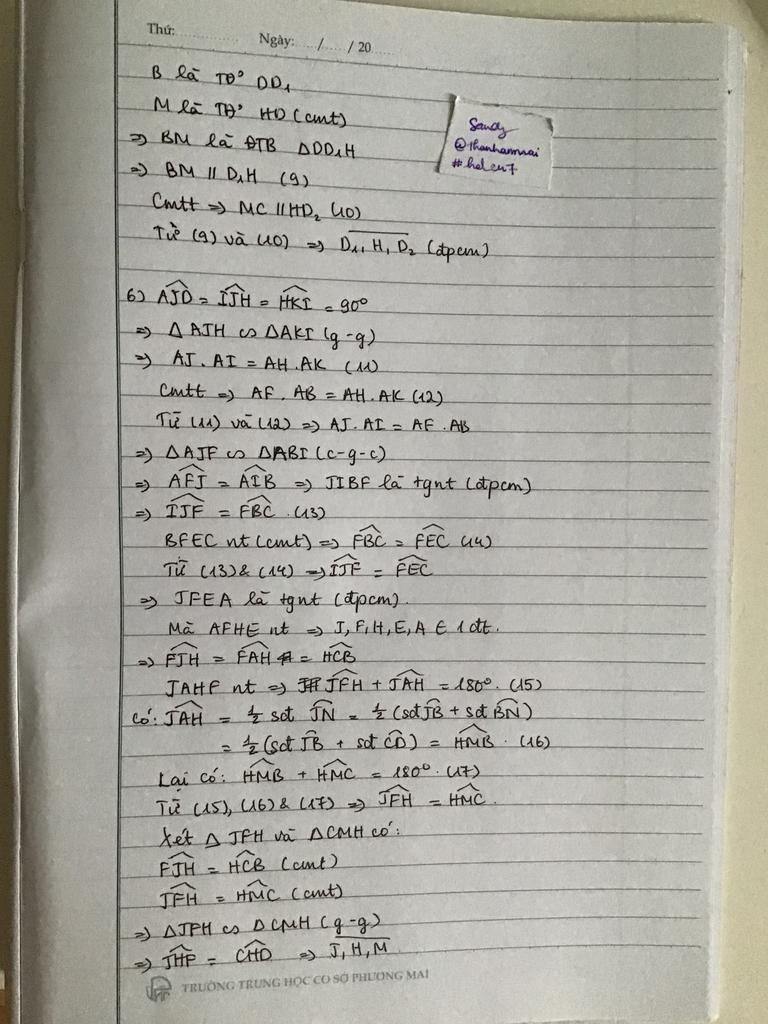 Thứ: Ngày: / / 20
B là TĐ° DD₁
M là TĐ° HD (cmt)
⇒ BM là ĐTB ΔDD₁H
⇒ BM // D₁H (9)
Cmtt ⇒ MC // HD₂ (10)
Từ (9) và (10) ⇒ \overline{D₁, H, D₂} (đpcm)
Sandy
@thanhamnai
#hdcu7
6) \widehat{AJD} = \widehat{IJH} = \widehat{HKI} = 90°
⇒ Δ AJH ∽ ΔAKI (g-g)
⇒ AJ. AI = AH. AK (11)
Cmtt ⇒ AF. AB = AH. AK (12)
Từ (11) và (12) ⇒ AJ. AI = AF. AB
⇒ ΔAJF ∽ ΔABI (c-g-c)
⇒ \widehat{AFJ} = \widehat{AIB} ⇒ JIBF là tgnt (đpcm)
⇒ \widehat{IJF} = \widehat{FBC}. (13)
BFEC nt (cmt) ⇒ \widehat{FBC} = \widehat{FEC} (14)
Từ (13) & (14) ⇒ \widehat{IJF} = \widehat{FEC}
⇒ JFEA là tgnt (đpcm).
Mà AFHE nt ⇒ J, F, H, E, A ∈ 1 đt.
⇒ \widehat{FJH} = \widehat{FAH} = \widehat{HCB}
JAHF nt ⇒ \widehat{JFH} + \widehat{JAH} = 180°. (15)
Có: \widehat{JAH} = ½ sđ \widehat{JN} = ½ (sđ \widehat{JB} + sđ \widehat{BN})
= ½ (sđ \widehat{JB} + sđ \widehat{CD}) = \widehat{HMB}. (16)
Lại có: \widehat{HMB} + \widehat{HMC} = 180°. (17)
Từ (15), (16) & (17) ⇒ \widehat{JFH} = \widehat{HMC}.
Xét Δ JFH và ΔCMH có:
\widehat{FJH} = \widehat{HCB} (cmt)
\widehat{JFH} = \widehat{HMC} (cmt)
⇒ ΔJFH ∽ ΔCMH (g-g)
⇒ \widehat{JHF} = \widehat{CHD} ⇒ \overline{J, H, M}
TRƯỜNG TRUNG HỌC CƠ SỞ PHƯƠNG MAI